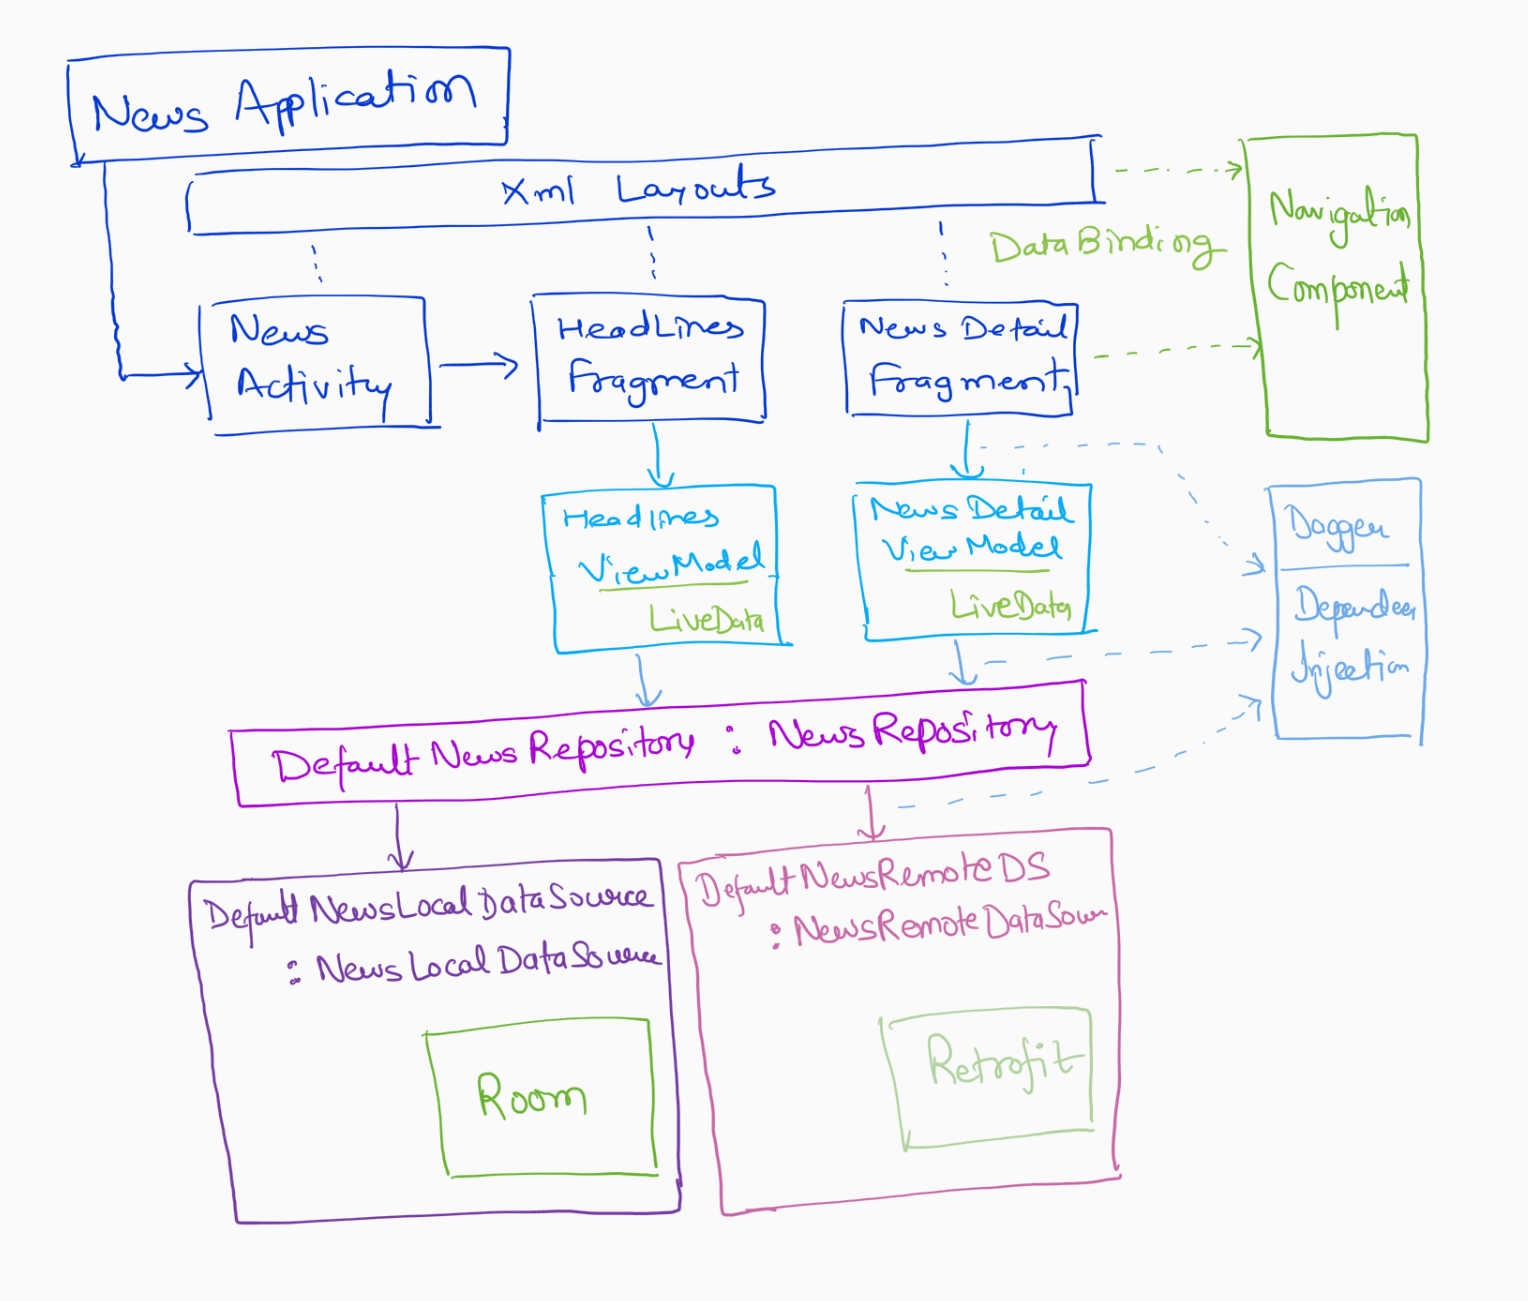 News Application
Xml Layouts
Data Binding
Navigation
Component
News
Activity
HeadLines
Fragment
News Detail
Fragment
Headlines
ViewModel
LiveData
News Detail
View Model
LiveData
Dagger
Injection
Default News Repository : News Repository
Default NewsLocal DataSource
: News Local DataSource
Default NewsRemote DS
: NewsRemote DataSour
Room
Retrofit